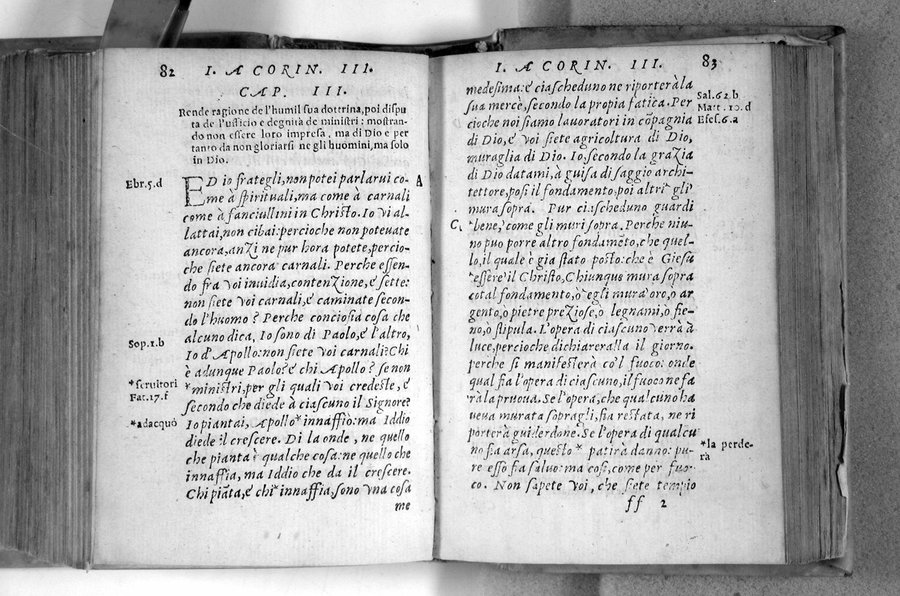 82 I. A CORIN. III.
CAP. III.
Rende ragione de l'humil sua dottrina, poi disputa
ta de l'ufficio e degnità de ministri: mostran-
do non essere loro impresa, ma di Dio e per
tanto da non gloriarsi ne gli huomini, ma solo
in Dio.
Ebr. 5. d
ED io frategli, non potei parlarui co- A
me à spirituali, ma come à carnali
come à fanciullini in Christo. Io vi al-
lattai, non cibai: percioche non poteuate
ancora, anzi ne pur hora potete, percio-
che siete ancora carnali. Perche essen-
do fra voi inuidia, contenzione, é sette:
non siete voi carnali, é caminate secon-
do l'huomo? Perche conciosia cosa che
Sop. 1. b
alcuno dica, Io sono di Paolo, é l'altro,
Io d'Apollo: non siete voi carnali? Chi
è adunque Paolo? é chi Apollo? se non
*scruitori
Fat. 17. f
*ministri, per gli quali voi credeste, é
secondo che diede à ciascuno il Signore?
*adacquò
Io piantai, Apollo *innaffiò: ma Iddio
diede il crescere. Di la onde, ne quello
che pianta è qualche cosa: ne quello che
innaffia, ma Iddio che da il crescere.
Chi piāta, é chi *innaffia, sono vna cosa
me
I. A CORIN. III. 83
medesima: é ciascheduno ne riporterà la
sua mercè, secondo la propia fatica. Per
Sal. 62. b
Matt. 10. d
Efes. 6. a
cioche noi siamo lauoratori in cōpagnia
di Dio, é voi siete agricoltura di Dio,
muraglia di Dio. Io, secondo la grazia
di Dio datami, à guisa di saggio archi-
tettore, posi il fondamento, poi altri gli
mura sopra. Pur ciascheduno guardi
C bene, come gli muri sopra. Perche niu-
no puo porre altro fondamēto, che quel-
lo, il quale è gia stato posto: che è Giesu
essere il Christo, Chiunque mura sopra
cotal fondamento, ò egli mura oro, o ar
gento, o pietre preziose, o legnami, o fie-
no, o stipula. L'opera di ciascuno verrà à
luce, percioche dichiareralla il giorno.
perche si manifesterà co'l fuoco: onde
qual fia l'opera di ciascuno, il fuoco ne fa
rà la pruoua. Se l'opera, che qualcuno ha
ueua murata sopragli, fia restata, ne ri
porterà guiderdone. Se l'opera di qualcu
no fia arsa, questo *patira danno: pu-
*la perde-
rà
re esso fia saluo: ma così, come per fuo-
co. Non sapete voi, che siete tempio
ff 2